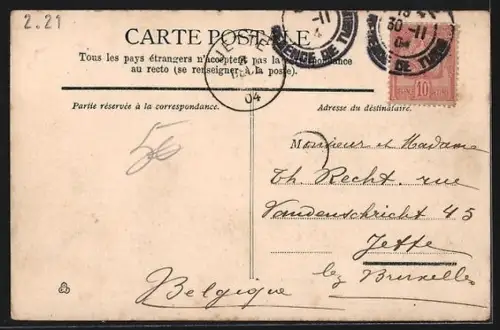 2.21
CARTE POSTALE
Tous les pays étrangers n'acceptent pas la correspondance
au recto (se renseigner à la poste).
Partie réservée à la correspondance.
Adresse du déstinataire.
30-11
04
10
-11
4
04
56
Monsieur et Madame
Th. Recht. rue
Vandenschricht 45
Jette
lez Bruxelles
Belgique